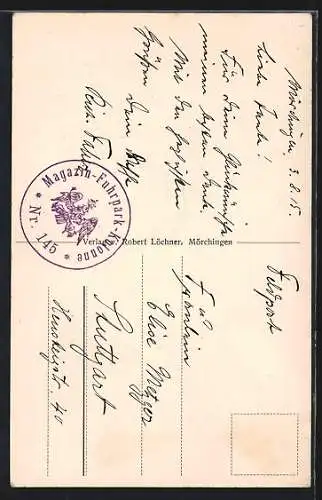 Mörchingen, 3.8.15.
Liebe Tante!
Für Deine Glückwünsche
meinen besten Dank.
Mit den herzlichsten
Grüßen Dein Neffe
Magazin-Fuhrpark-Kolonne
* Nr. 145 *
Verlag v. Robert Löchner, Mörchingen
Feldpost
Fräulein
Elise Metzger
Stuttgart
40